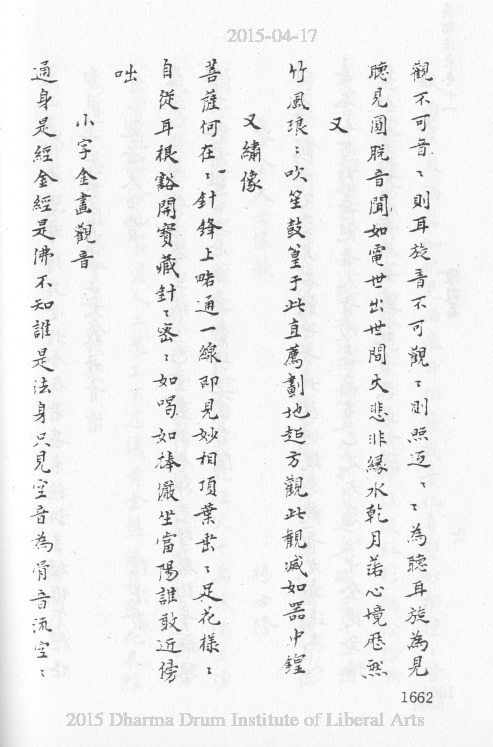 2015-04-17
觀不可音〻則耳旋音不可觀〻則照逈〻〻為聽耳旋為見
聽見圓脫音聞如電世出世間大悲非緣水乾月落心境風熙
又
竹風琅〻吹笙鼓篁于此直薦劃地超方觀此觀滅如器中鍠
又繡像
菩薩何在〻針鋒上略通一線即見妙相頂葉埀〻足花樣〻
自從耳根豁開寶藏針〻密〻如喝如棒儼坐當陽誰敢近傍
咄
小字金畫觀音
通身是經金經是佛不知誰是法身只見空音為骨音流空〻
1662
2015 Dharma Drum Institute of Liberal Arts